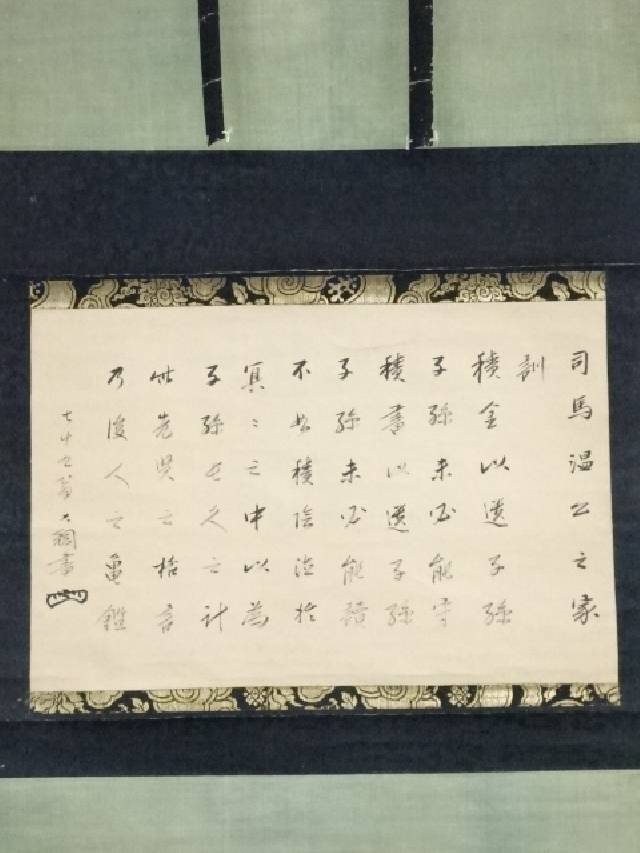 司馬温公之家
訓
積金以遺子孫
子孫未必能守
積書以遺子孫
子孫未必能讀
不如積陰德於
冥〻之中以為
子孫長久之計
此先賢之格言
乃後人之龜鑑
七十七翁 書